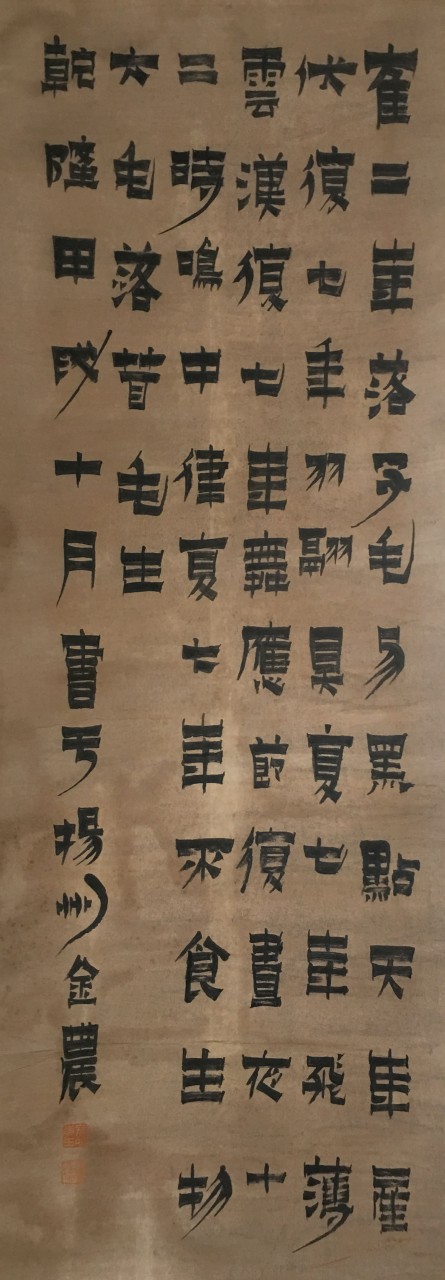 隺二年落子毛易黑點天年
伏復七年羽翮具夏七年飛薄
雲漢復七年舞應節復晝夜十
二時鳴中律夏七年不食生物
大毛落茸毛生
乾隆甲戌十月書于揚州金農